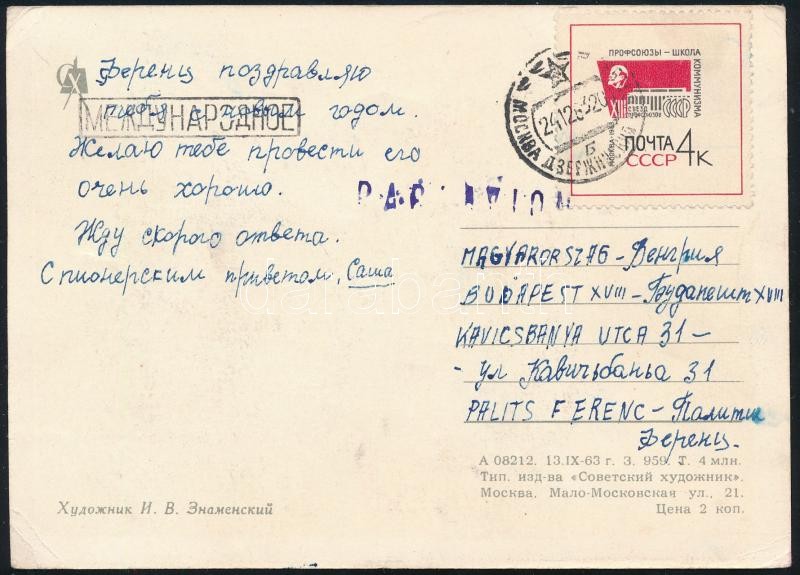 Ференц поздравляю
тибя с новым годом.
МЕЖДУНАРОДНОЕ
Желаю тебе провести его
очень хорошо.
Жду скорого ответа.
С пионерским приветом, Саша
PAR AVION
ПРОФСОЮЗЫ – ШКОЛА
КОММУНИЗМА
XIII
СЪЕЗД
ПРОФСОЮЗОВ
СССР
МОСКВА-1963
ПОЧТА 4К
СССР
МОСКВА ДЗЕРЖИНСКИЙ
Б
MAGYARORSZAG – Венгрия
BUDAPEST XVIII – Будапешт XVIII
KAVICSBANYA UTCA 31 –
- ул Кавичьбаньа 31
PALITS FERENC – Палитш
Ференц.
А 08212. 13.IX-63 г. З. 959. Т. 4 млн.
Тип. изд-ва «Советский художник».
Москва, Мало-Московская ул., 21.
Цена 2 коп.
Художник И. В. Знаменский
darabanth